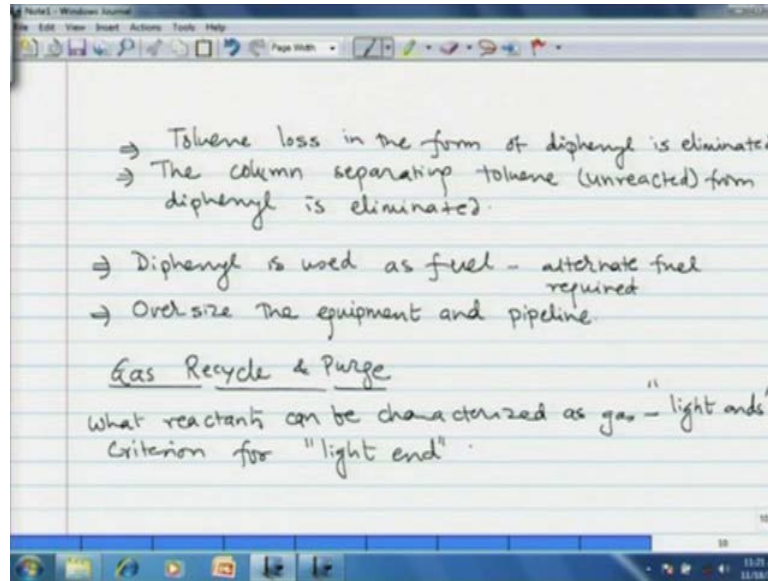 Note1 - Windows Journal
File Edit View Insert Actions Tools Help
Page Width
⇒ Toluene loss in the form of diphenyl is eliminated
⇒ The column separating toluene (unreacted) from
diphenyl is eliminated.
⇒ Diphenyl is used as fuel - alternate fuel
required
⇒ Over size the equipment and pipeline.
Gas Recycle & Purge
What reactants can be characterized as gas - "light ends"
Criterion for "light end".
10
11:21